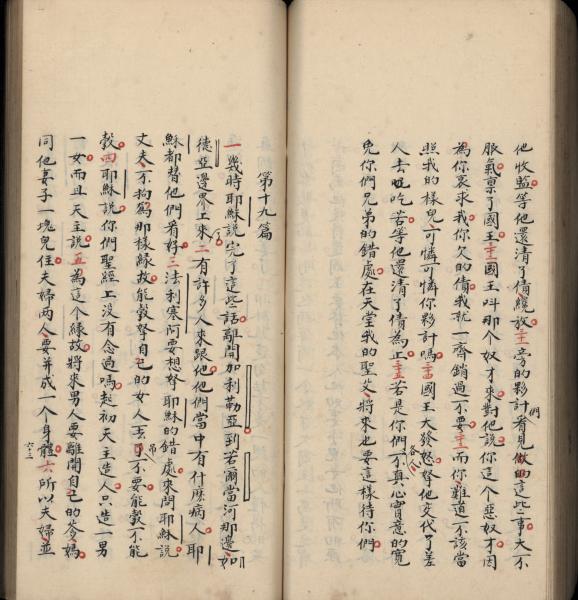 他收監等他還清了債纔放三十一旁的夥計們看見做的這些事大不
服氣稟了國王三十二國王呌那個奴才來對他說你這個惡奴才因
為你哀求我你欠的債我就一齊銷過不要三十三而你難道不該當
照我的樣兒可憐可憐你夥計嗎三十四國王大發怒拏他交代了差
人去吃苦等他還清了債為止三十五若是你們各人不真心實意的寬
免你們兄弟的錯處在天堂我的聖父將來也要這樣待你們
第十九篇
一幾時耶穌說完了這些話離開加利勒亞到若爾當河那邊如
德亞邊界上來二有許多人來跟他他們當中有什麼病人耶
穌都替他們看好三法利塞阿要想拏耶穌的錯處來問耶穌說
丈夫不拘為那樣緣故能彀拏自己的女人丟吊了不要能彀不能
彀四耶穌說你們聖經上沒有念過嗎起初天主造人只造一男
一女而且天主說五為這個緣故將來男人要離開自己的爹媽
同他妻子一塊兒住夫婦兩人要并成一個身體六所以夫婦並